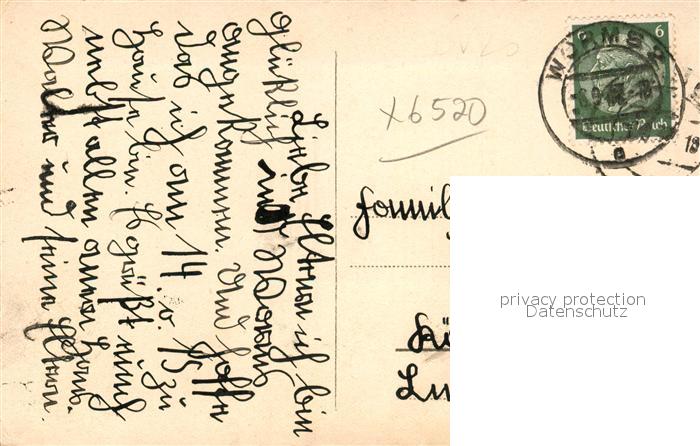 Liebe Eltern ich bin
glücklich Worms
angekommen. Und hoffe
das ich am 14. o. 15 zu
Hause bin. Es grüßt euch
nebst allen euer
Walter und seine Eltern.
X6520
WORMS
6
Deutsches Reich
a
Famil
privacy protection
Datenschutz